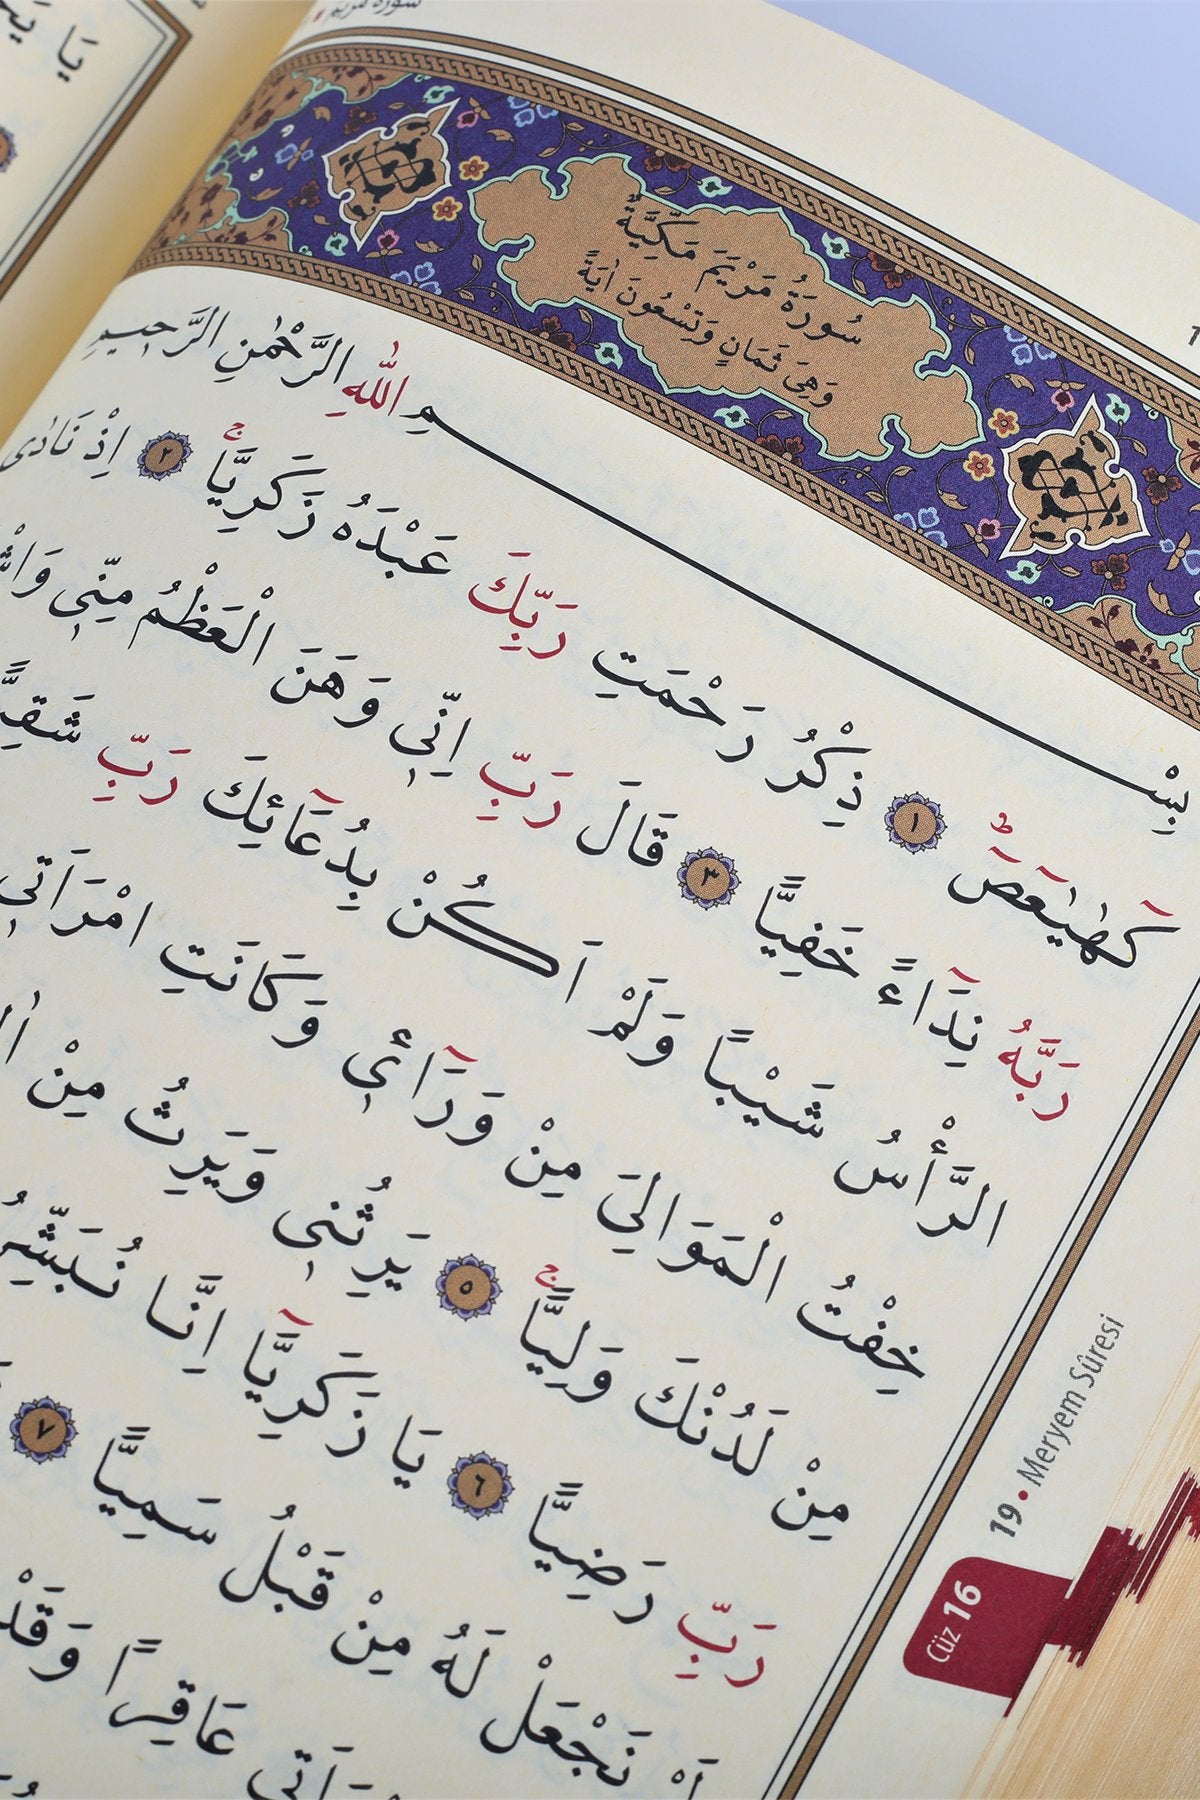 سُورَةُ مَرْيَمَ
سُورَةُ مَرْيَمَ مَكِّيَّةٌ
وَهِيَ ثَمَانٍ وَتِسْعُونَ اٰيَةً
بِسْمِ اللّٰهِ الرَّحْمٰنِ الرَّحِيمِ
كٓهٰيٰعٓصٓ ۜ ١ ذِكْرُ رَحْمَتِ رَبِّكَ عَبْدَهُ زَكَرِيَّاۚ ٢ اِذْ نَادٰى
رَبَّهُ نِدَٓاءً خَفِيًّا ٣ قَالَ رَبِّ اِنّ۪ي وَهَنَ الْعَظْمُ مِنّ۪ي
الرَّأْسُ شَيْبًا وَلَمْ اَكُنْ بِدُعَٓائِكَ رَبِّ شَقِيًّا
خِفْتُ الْمَوَالِيَ مِنْ وَرَٓاء۪ي وَكَانَتِ امْرَاَت۪ي
مِنْ لَدُنْكَ وَلِيًّاۚ ٥ يَرِثُن۪ي وَيَرِثُ مِنْ
رَبِّ رَضِيًّا ٦ يَا زَكَرِيَّٓا اِنَّا نُبَشِّرُ
نَجْعَلْ لَهُ مِنْ قَبْلُ سَمِيًّا ٧
عَاقِرًا وَقَدْ
19 • Meryem Sûresi
Cüz 16